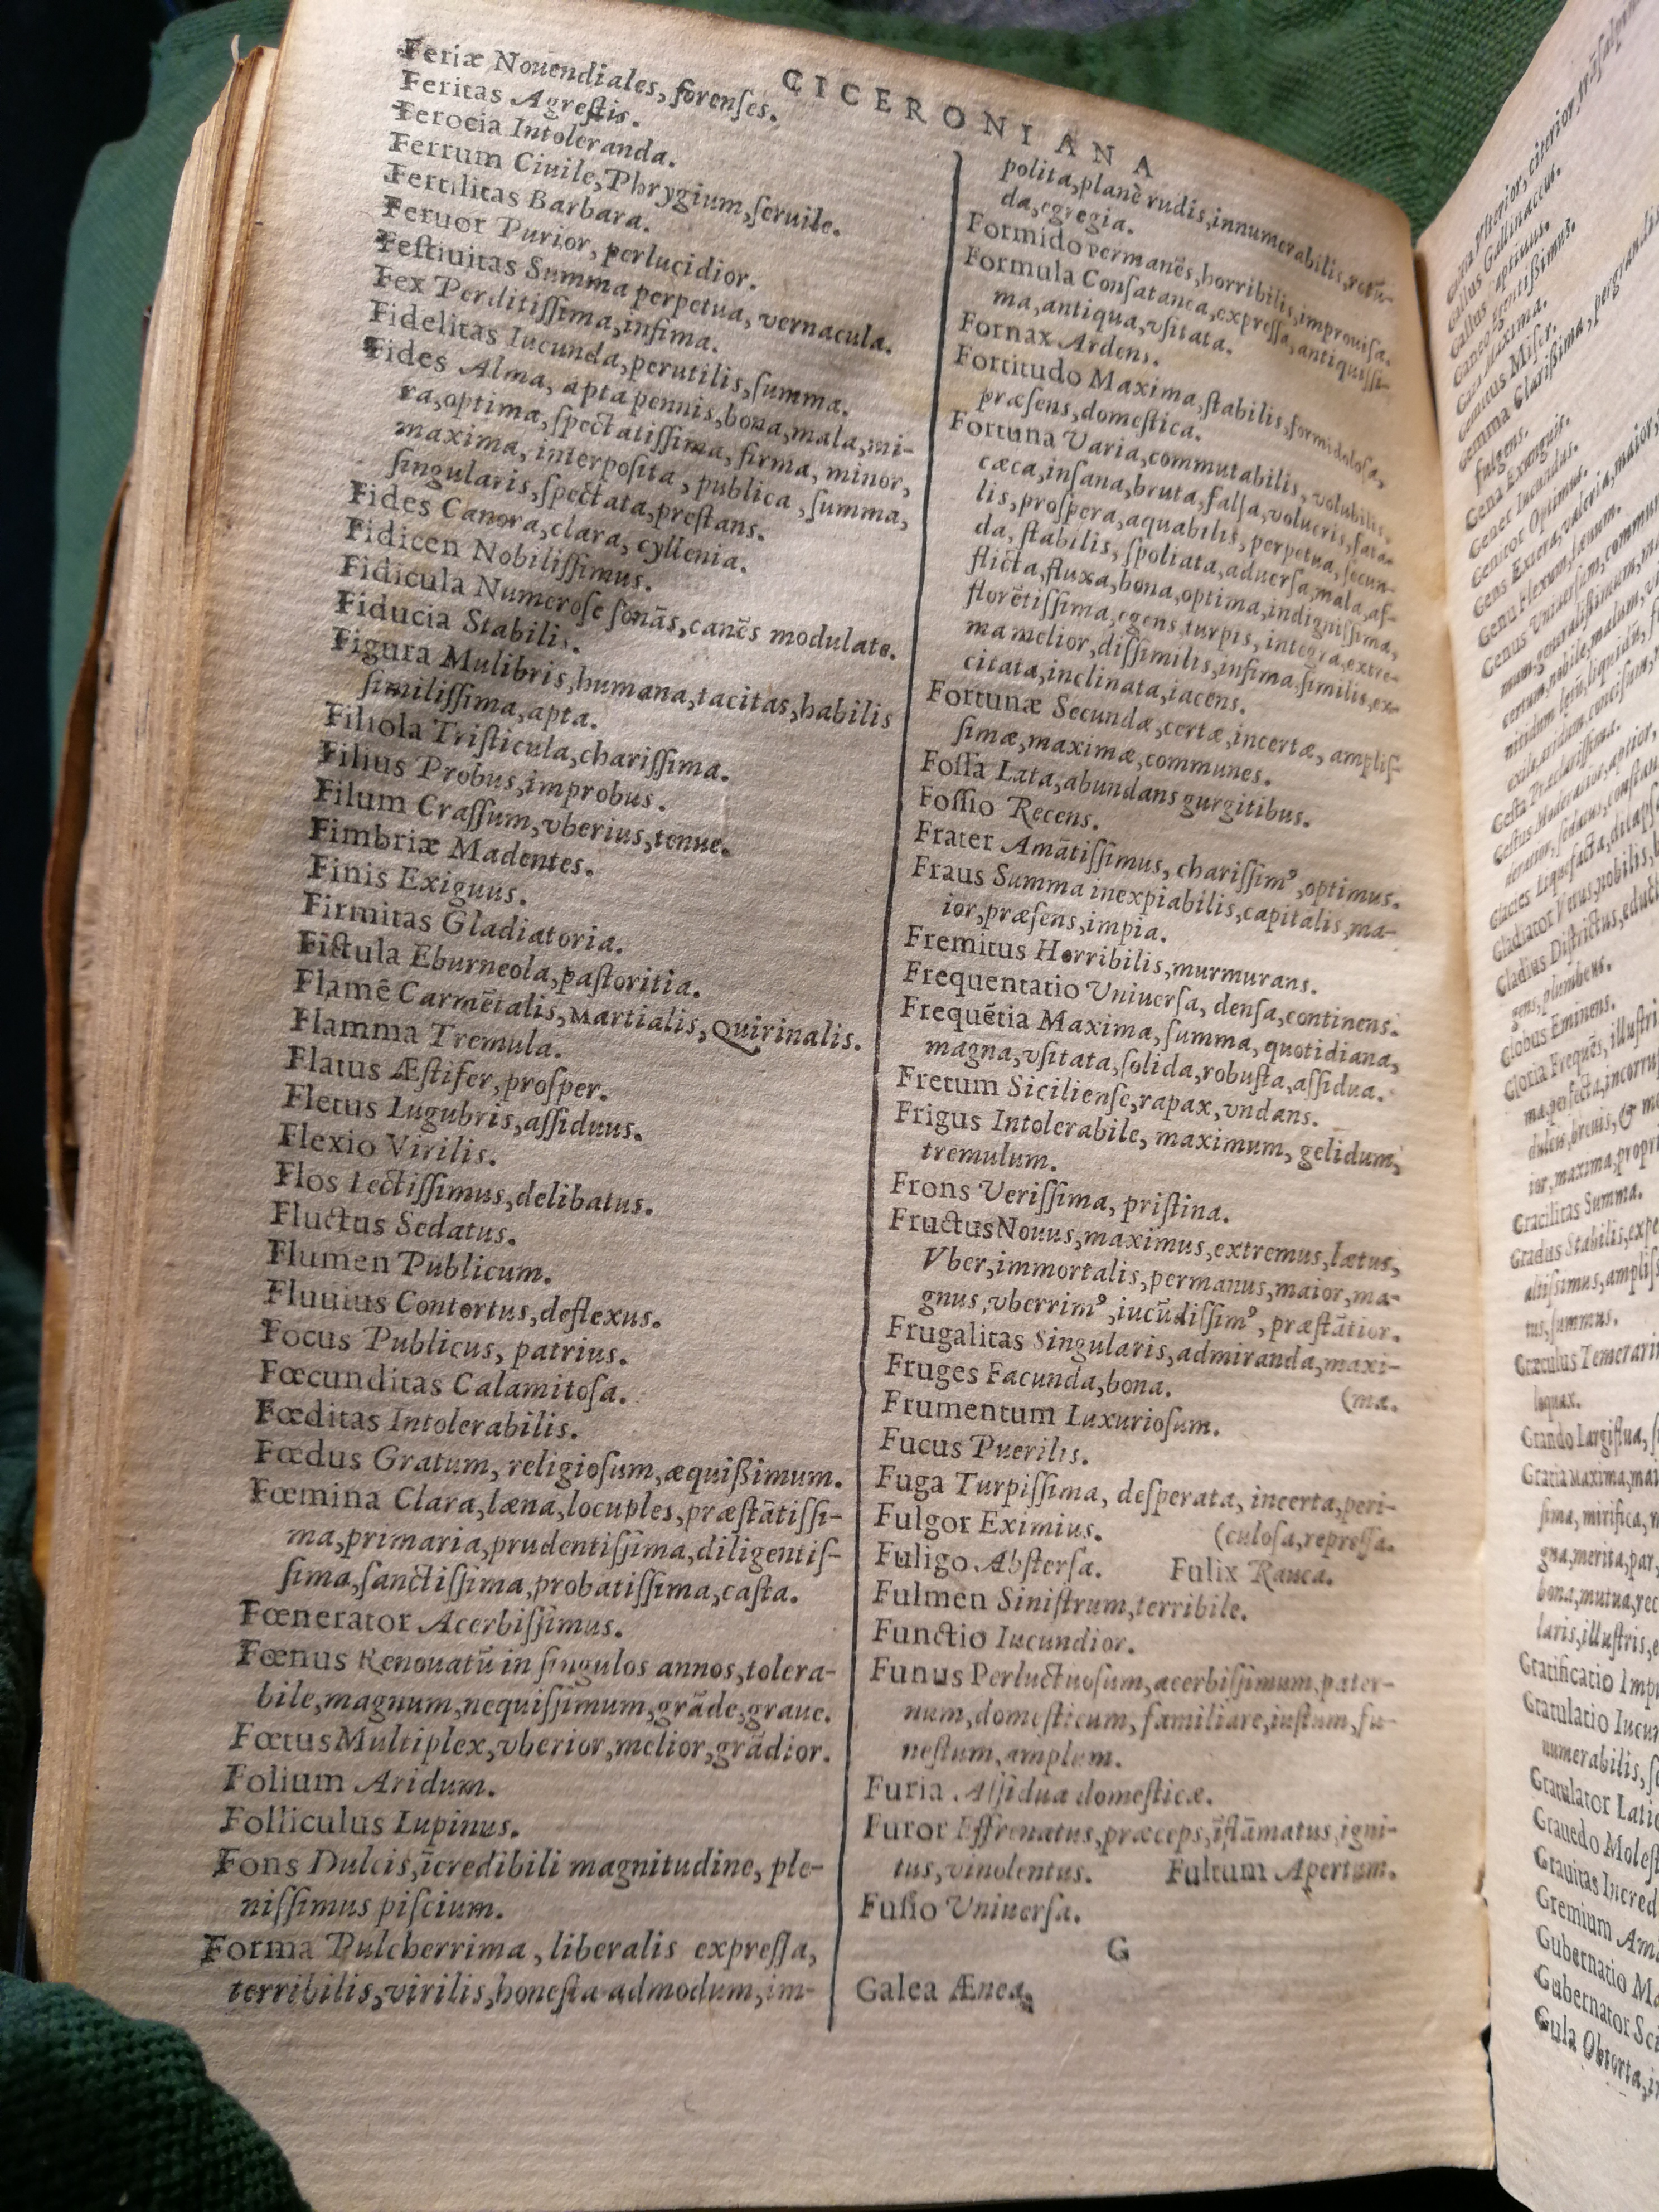 CICERONIANA
Feriæ Nouendiales, forenſes.
Feritas Agreſtis.
Ferocia Intoleranda.
Ferrum Ciuile, Phrygium, ſeruile.
Fertilitas Barbara.
Feruor Purior, perlucidior.
Feſtiuitas Summa perpetua, vernacula.
Fex Perditiſſima, infima.
Fidelitas Iucunda, perutilis, ſumma.
Fides Alma, apta pennis, bona, mala, mi-
ra, optima, ſpectatiſſima, firma, minor,
maxima, interpoſita, publica, ſumma,
ſingularis, ſpectata, preſtans.
Fides Canora, clara, cyllenia.
Fidicen Nobiliſſimus.
Fidicula Numeroſe ſonãs, canẽs modulate.
Fiducia Stabilis.
Figura Mulibris, humana, tacitas, habilis
ſimiliſſima, apta.
Filiola Triſticula, chariſſima.
Filius Probus, improbus.
Filum Craſſum, vberius, tenue.
Fimbriæ Madentes.
Finis Exiguus.
Firmitas Gladiatoria.
Fiſtula Eburneola, paſtoritia.
Flamẽ Carmẽtalis, Martialis, Quirinalis.
Flamma Tremula.
Flatus Æſtifer, proſper.
Fletus Lugubris, aſſiduus.
Flexio Virilis.
Flos Lectiſſimus, delibatus.
Fluctus Sedatus.
Flumen Publicum.
Fluuius Contortus, deflexus.
Focus Publicus, patrius.
Fœcunditas Calamitoſa.
Fœditas Intolerabilis.
Fœdus Gratum, religioſum, æquißimum.
Fœmina Clara, læna, locuples, præſtãtiſſi-
ma, primaria, prudentiſſima, diligentiſ-
ſima, ſanctiſſima, probatiſſima, caſta.
Fœnerator Acerbiſſimus.
Fœnus Renouatũ in ſingulos annos, tolera-
bile, magnum, nequiſſimum, grãde, graue.
Fœtus Multiplex, vberior, melior, grãdior.
Folium Aridum.
Folliculus Lupinus.
Fons Dulcis, ĩcredibili magnitudine, ple-
niſſimus piſcium.
Forma Pulcherrima, liberalis expreſſa,
terribilis, virilis, honeſta admodum, im-
polita, planè rudis, innumerabilis, retũ-
da, egregia.
Formido permanẽs, horribilis, improuiſa.
Formula Conſatanea, expreſſa, antiquiſſi-
ma, antiqua, vſitata.
Fornax Ardens.
Fortitudo Maxima, ſtabilis, formidoloſa,
præſens, domeſtica.
Fortuna Varia, commutabilis, volubilis,
cæca, inſana, bruta, falſa, volucris, fata-
lis, proſpera, æquabilis, perpetua, ſecun-
da, ſtabilis, ſpoliata, aduerſa, mala, af-
flicta, fluxa, bona, optima, indigniſſima,
florẽtiſſima, egens, turpis, integra, extre-
ma melior, diſſimilis, infima, ſimilis, ex-
citata, inclinata, iacens.
Fortunæ Secundæ, certæ, incertæ, ampliſ-
ſimæ, maximæ, communes.
Foſſa Lata, abundans gurgitibus.
Foſſio Recens.
Frater Amãtiſſimus, chariſſimꝰ, optimus.
Fraus Summa inexpiabilis, capitalis, ma-
ior, præſens, impia.
Fremitus Horribilis, murmurans.
Frequentatio Vniuerſa, denſa, continens.
Frequẽtia Maxima, ſumma, quotidiana,
magna, vſitata, ſolida, robuſta, aſſidua.
Fretum Sicilienſe, rapax, vndans.
Frigus Intolerabile, maximum, gelidum,
tremulum.
Frons Veriſſima, priſtina.
Fructus Nouus, maximus, extremus, lætus,
Vber, immortalis, permanus, maior, ma-
gnus, vberrimꝰ, iucũdiſſimꝰ, præſtãtior.
Frugalitas Singularis, admiranda, maxi-
Fruges Facunda, bona. (ma.
Frumentum Luxurioſum.
Fucus Puerilis.
Fuga Turpiſſima, deſperata, incerta, peri-
Fulgor Eximius. (culoſa, repreſſa.
Fuligo Abſterſa. Fulix Rauca.
Fulmen Siniſtrum, terribile.
Functio Iucundior.
Funus Perluctuoſum, acerbiſſimum, pater-
num, domeſticum, familiare, iuſtum, fu-
neſtum, amplum.
Furia Aſſidua domeſticæ.
Furor Effrenatus, præceps, ĩflãmatus, igni-
tus, vinolentus. Fultum Apertum.
Fuſio Vniuerſa.
G
Galea Ænea.
Gallus Gallinaceus.
Gena Exanguis.
Gener Iucundus.
Genitor Optimus.
Globus Eminens.
Gracilitas Summa.
tus, ſummus.
loquax.